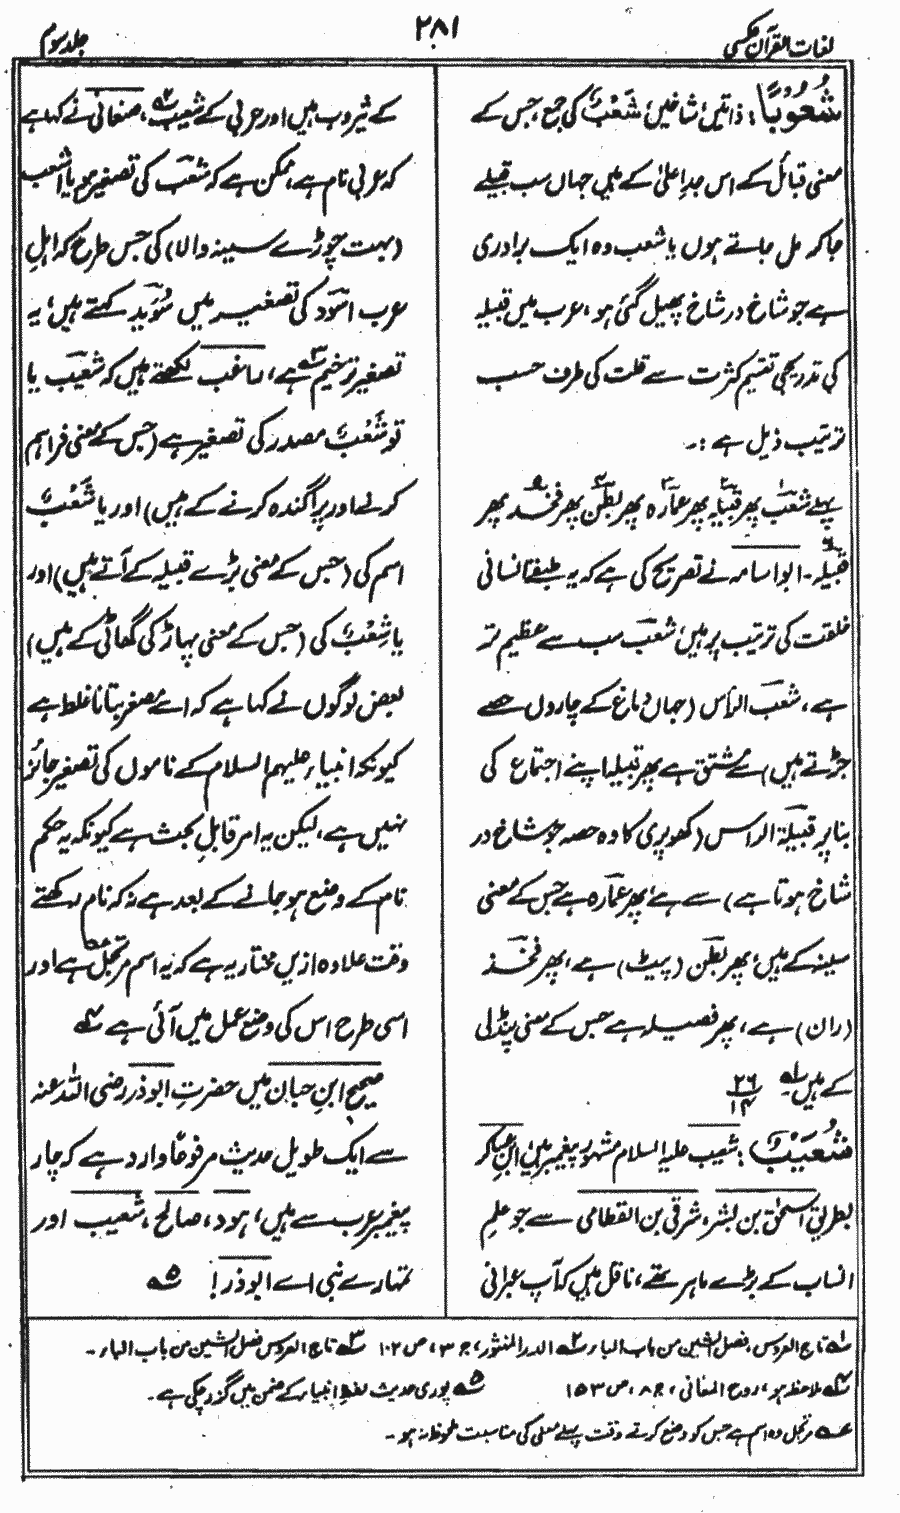 لغات القرآن عکسی
۲۸۱
جلد سوم
شُعُوْبًا: ذاتیں، شاخیں، شَعْبٌ کی جمع، جس کے
معنی قبائل کے اس جدِ اعلیٰ کے ہیں جہاں سب قبیلے
جا کر مل جاتے ہوں یا شعب وہ ایک برادری
ہے جو شاخ در شاخ پھیل گئی ہو، عرب میں قبیلہ
کی تدریجی تقسیم کثرت سے قلت کی طرف حسب
ترتیب ذیل ہے :۔
پہلے شَعْب پھر قبیلہ پھر عمارہ پھر بطن پھر فخذ پھر
فصیلہ۔ ابو اسامہ نے تصریح کی ہے کہ یہ طبقے انسانی
خلقت کی ترتیب پر ہیں، شَعب سب سے عظیم تر
ہے، شعب الرأس (جہاں دماغ کے چاروں حصے
جڑتے ہیں) سے مشتق ہے پھر قبیلہ اپنے اجتماع کی
بنا پر قبیلۃ الراس (کھوپری کا وہ حصہ جو شاخ در
شاخ ہوتا ہے) سے ہے، پھر عمارہ ہے جس کے معنی
سینہ کے ہیں، پھر بطن (پیٹ) ہے، پھر فخذ
(ران) ہے، پھر فصیلہ ہے جس کے معنی پنڈلی
کے ہیں۔ ۱ ۲۶/۱۴
شُعَيْبٌ: شعیب علیہ السلام مشہور پیغمبر ہیں، ابن عساکر
بطریق اسحٰق بن بشر، شرقی بن القطامی سے جو علمِ
انساب کے بڑے ماہر تھے، ناقل ہیں کہ آپ عبرانی
کے یثروب ہیں اور عربی کے شعیب ۲، صنعانی نے کہا ہے
کہ عربی نام ہے، ممکن ہے کہ شعب کی تصغیر ہو یا اشعب
(بہت چوڑے سینہ والا) کی جس طرح کہ اہلِ
عرب اسود کی تصغیر میں سُوَید کہتے ہیں، یہ
تصغیر ترخیم ۳ ہے، راغب لکھتے ہیں کہ شعیب یا
تو شَعْبٌ مصدر کی تصغیر ہے (جس کے معنی فراہم
کرنے اور پراگندہ کرنے کے ہیں) اور یا شَعْبٌ
اسم کی (جس کے معنی بڑے قبیلہ کے آتے ہیں) اور
یا شِعْبٌ کی (جس کے معنی پہاڑ کی گھاٹی کے ہیں)
بعض لوگوں نے کہا ہے کہ اسے مصغر بتانا غلط ہے
کیونکہ انبیاء علیہم السلام کے ناموں کی تصغیر جائز
نہیں ہے، لیکن یہ امر قابلِ بحث ہے کیونکہ یہ حکم
نام کے وضع ہو جانے کے بعد ہے نہ کہ نام رکھتے
وقت علاوہ ازیں مختار یہ ہے کہ یہ اسم مرتجل عہ ہے اور
اسی طرح اس کی وضع عمل میں آئی ہے ۴
صحیح ابنِ حبان میں حضرتِ ابوذر رضی اللہ عنہ
سے ایک طویل حدیث مرفوعًا وارد ہے کہ چار
پیغمبر عرب سے ہیں، ہود، صالح، شعیب اور
تمہارے نبی اے ابوذر! ۵
۱ تاج العروس، فصل الشین من باب البار ۲ الدر المنثور، ج ۳، ص ۱۰۲ ۳ تاج العروس فصل الشین من باب البار۔
۴ ملاحظہ ہو، روح المعانی، ج ۸، ص ۱۵۳ ۵ پوری حدیث لفظِ انبیار کے ضمن میں گزر چکی ہے۔
عہ مرتجل وہ اسم ہے جس کو وضع کرتے وقت پہلے معنی کی مناسبت ملحوظ نہ ہو۔